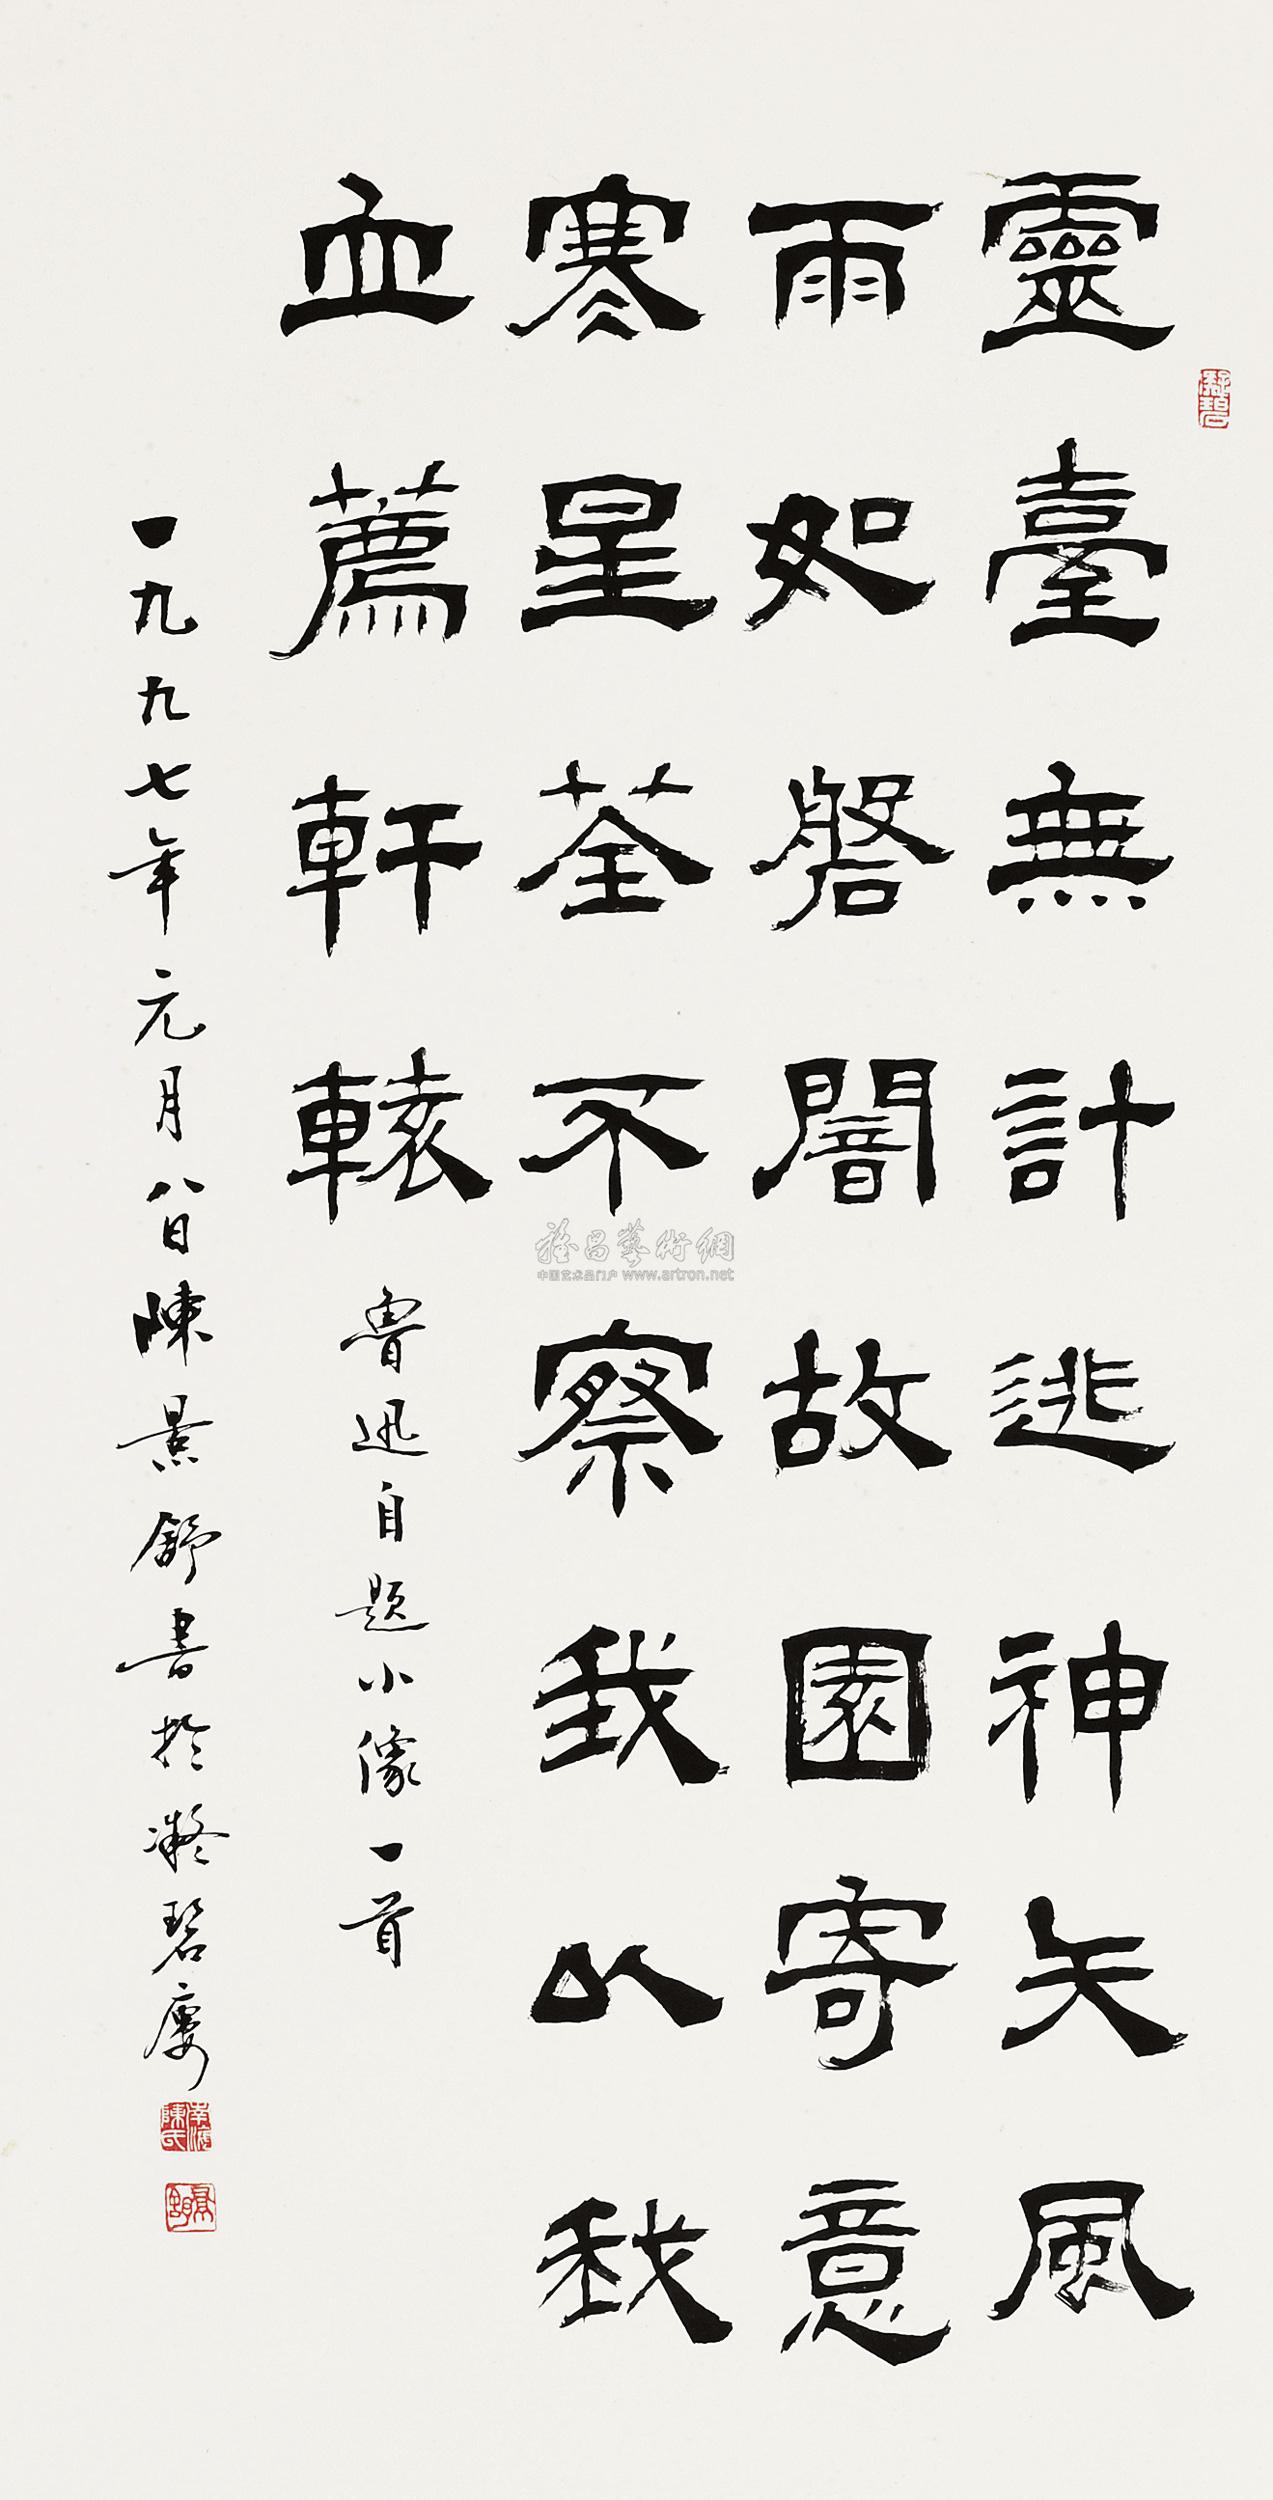 靈臺無計逃神矢風
雨如磐闇故園寄意
寒星荃不察我以我
血薦軒轅
魯迅自題小像一首
一九九七年元月八日陳景舒書於凝碧廔
凝碧
南海陳氏
景舒
雅昌藝術網
中国艺术品门户 www.artron.net